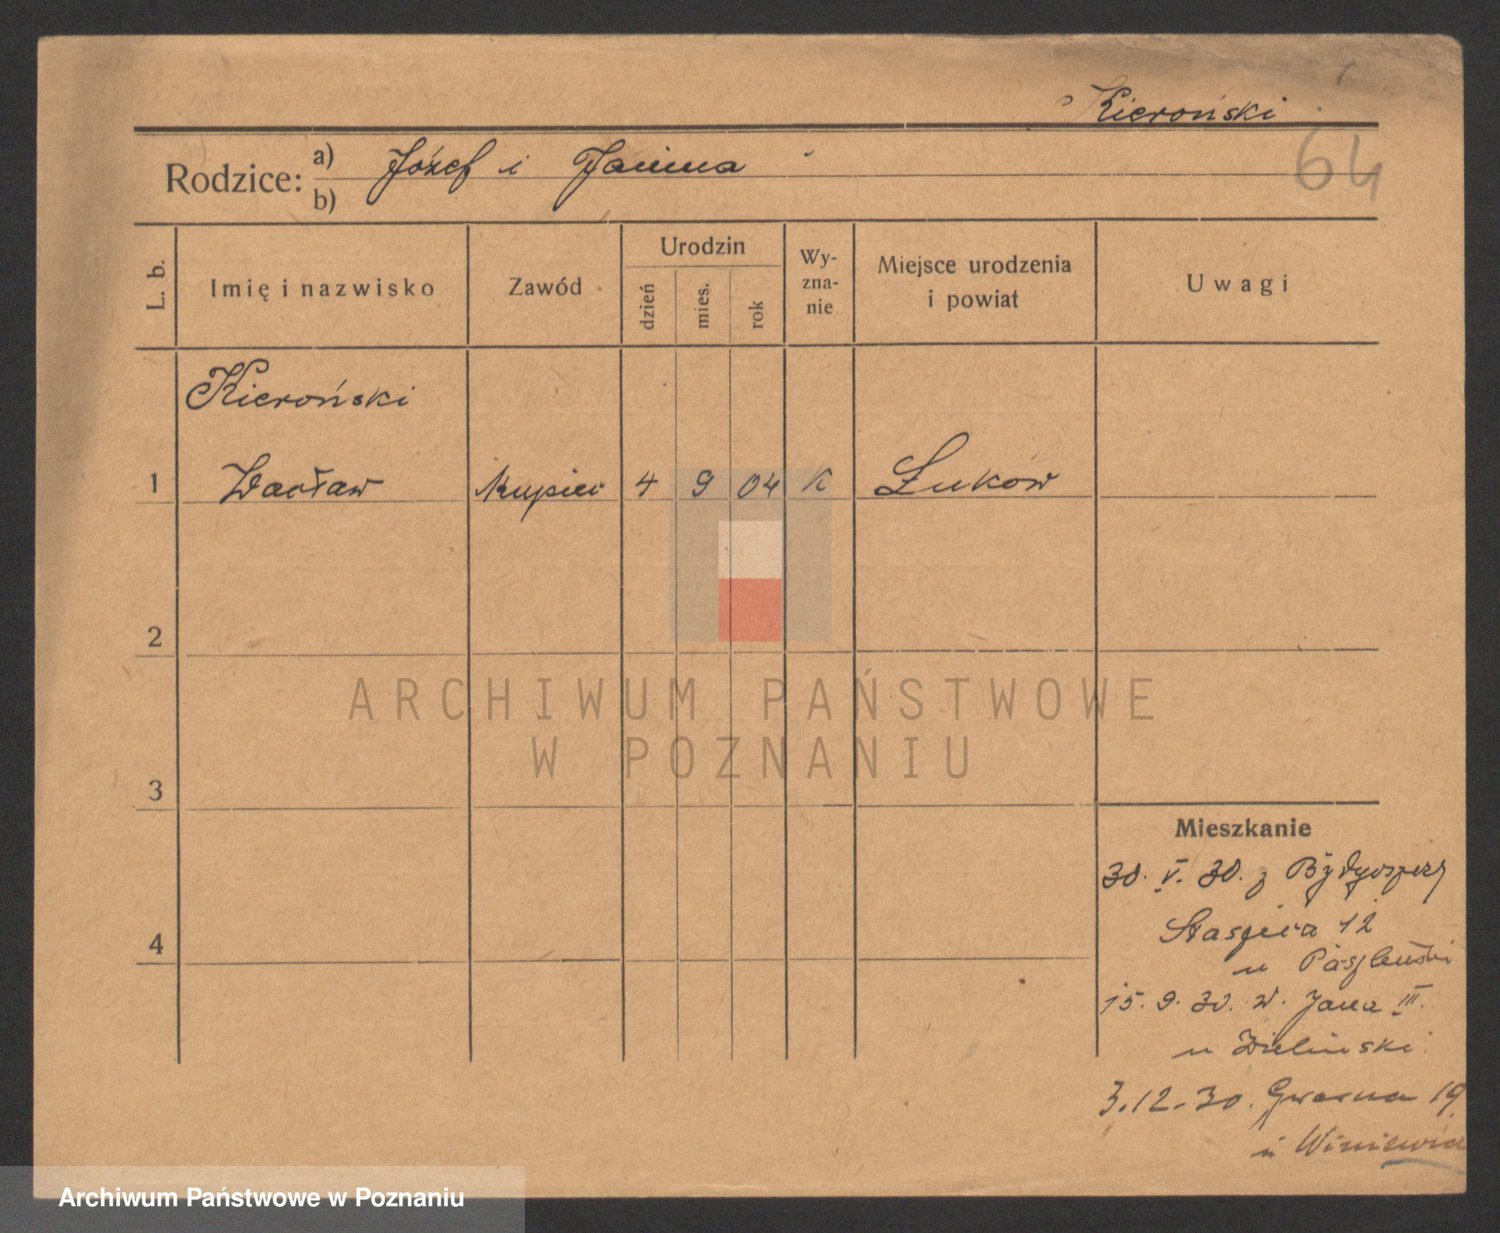 Kieroński
64
Rodzice: a) Józef i Janina
b)
L. b.
Imię i nazwisko
Zawód
Urodzin
dzień
mies.
rok
Wy-
zna-
nie
Miejsce urodzenia
i powiat
Uwagi
Kieroński
1 Wacław kupiec 4 9 04 K Łuków
2
ARCHIWUM PAŃSTWOWE
W POZNANIU
3
4
Mieszkanie
30. V. 30. z Bydgoszczy
Staszica 12
u
15. 9. 30. W. Jana III.
u Zieliński
3.12.30. Gwarna 19
u
Archiwum Państwowe w Poznaniu